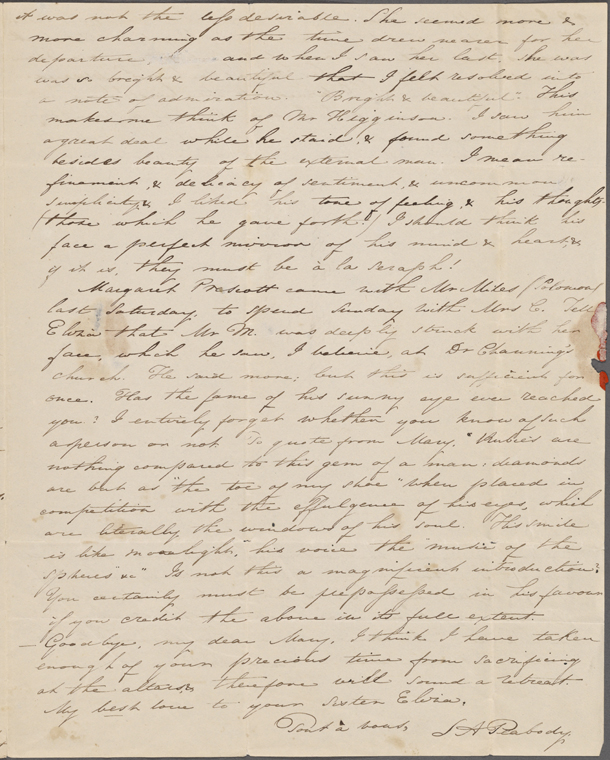 it was not the less desirable. She seemed more &
more charming as the time drew nearer for her
departure, and when I saw her last she was
was so bright & beautiful that I felt resolved into
a note of admiration. "Bright & beautiful". This
makes me think of Mr Higginson. I saw him
a great deal while he staid, & found something
besides beauty of the external man. I mean re-
finement, & delicacy of sentiment, & uncommon
simplicity, & I liked his tone of feeling, & his thoughts
(those which he gave forth.) I should think his
face a perfect mirror of his mind & heart, &
if it is, they must be à la seraph!
Margaret Prescott came with Mr Miles (Solomon)
last Saturday, to spend Sunday with Mrs C. Tell
Eliza that Mr M. was deeply struck with her
face, which he saw, I believe, at Dr Channing's
church. He said more; but this is sufficient for
once. Has the fame of his sunny eye ever reached
you? I entirely forget whether you know of such
a person or not. To quote from Mary, "Rubies are
nothing compared to this gem of a man: diamonds
are but as "the toe of my shoe" when placed in
competition with the effulgence of his eyes, which
are literally the windows of his soul. His smile
is like moonlight," his voice the "music of the
spheres" &c" Is not this a magnificent introduction?
You certainly must be prepossessed in his favour
if you credit the above in its full extent.
— Goodbye, my dear Mary, I think I have taken
enough of your precious time from sacrificing
at the altars, & therefore will sound a retreat.
My best love to your sister Eliza.
S A Peabody.